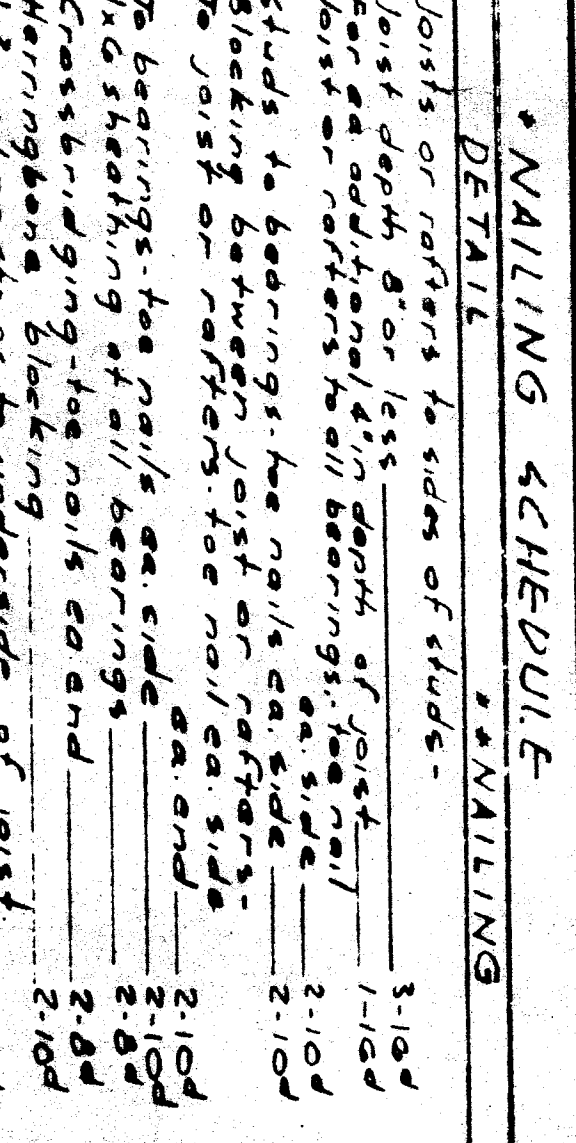 * NAILING SCHEDULE
DETAIL * * NAILING
Joists or rafters to sides of studs-
Joist depth 8" or less 3-16d
For ea. additional 4" in depth of joist 1-16d
Joist or rafters to all bearings-toe nail
ea. side 2-10d
Studs to bearings-toe nails ea. side 2-10d
Blocking between joist or rafters-
To joist or rafters-toe nail ea. side
ea. end 2-10d
To bearings-toe nails ea. side 2-10d
1x6 sheathing at all bearings 2-8d
Crossbridging-toe nails ea. end 2-8d
Herringbone blocking 2-10d
to underside of joist